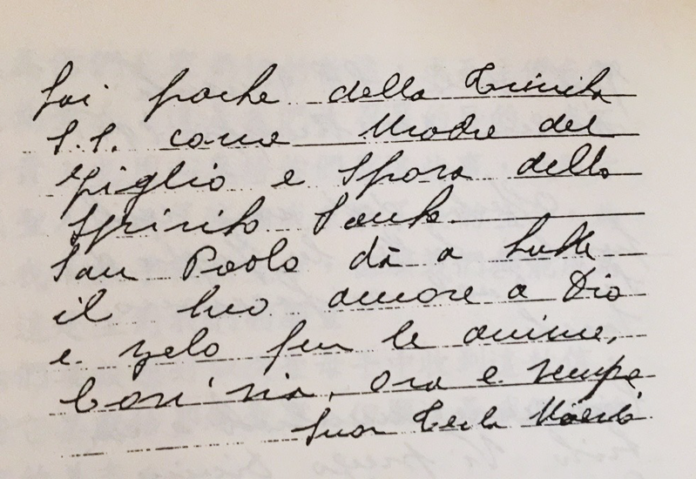 Fai parte della Trinità
S.S. come Madre del
Figlio e Sposa dello
Spirito Santo.
San Paolo dà a tutte
il tuo amore a Dio
e zelo per le anime.
Così sia, ora e sempre
Suor Tecla Maria